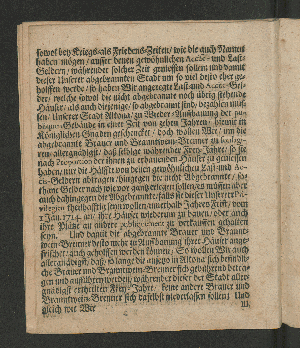 sowol bey Kriegs- als Friedens-Zeiten / wie die auch Namen
haben mögen / ausser denen gewöhnlichen Accis- und Last-
Geldern / währender solcher Zeit geniessen sollen und damit
dieser Unserer abgebrannten Stadt um so viel desto eher ge-
holffen werde / so haben Wir angeregte Last- und Accis-Gel-
der / welche sowol die nicht abgebrannte noch übrig stehende
Häuser / als auch diejenige / so abgebrannt sind / bezahlen müs-
sen / Unserer Stadt Altona / zu Wieder-Aufbauung der pu-
bliquen Gebäude in einer Zeit von zehen Jahren / hiemit in
Königlichen Gnaden geschencket / doch wollen Wir / um die
abgebrannte Brauer und Brannwein-Brenner zu
allergnädigst / daß selbige während der Jahre / so sie
nach der ihnen zu erbauenden Häuser zu geniessen
haben / nur die Hälffte von denen gewöhnlichen Last- und Ac-
cis-Geldern abtragen / hingegen die nicht Abgebrannte / sol-
thane Gelder nach wie vor gantz erlegen sollen / es müssen aber
auch dahingegen die Abgebrannte / falls sie dieser Unserer
theilhafftig seyn wollen / innerhalb Jahres Frist / vom
1 Jan. 1714. an / ihre Häuser wiederum zu bauen / oder auch
ihre Plätze an andere zu verkauffen gehalten
seyn. Und damit die abgebrannte Brauer und Brannt-
wein-Brenner desto mehr zu Aufbauung ihrer Häuser ange-
frischet / auch geholffen werden können; So wollen Wir auch
allergnädigst / daß / so lange die anjetzo in Altona sich befindli-
che Brauer und Brandtwein-Brenner sich gebührend betra-
gen und aufführen werden / während dieser der Stadt aller-
gnädigst ertheilten Frey-Jahre / keine andere Brauer und
Branntwein-Brenner sich daselbst niederlassen sollen; Und
gleich wie Wir